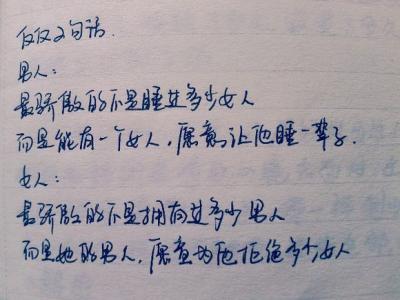 仅仅2句话.
男人:
最骄傲的不是睡过多少女人
而是能有一个女人,愿意让他睡一辈子.
女人:
最骄傲的不是拥有过多少男人
而是她的男人,愿意为他拒绝多少女人